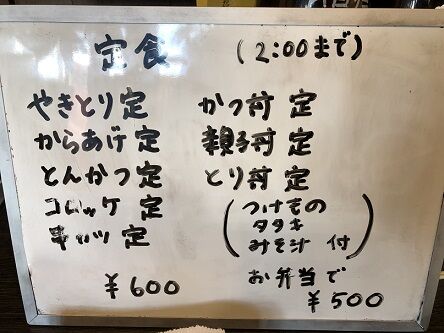 定食 (2:00まで)
やきとり定
からあげ定
とんかつ定
コロッケ定
串カツ定
¥600
かつ丼定
親子丼定
とり丼定
(つけもの
タタキ
みそ汁付)
お弁当で
¥500